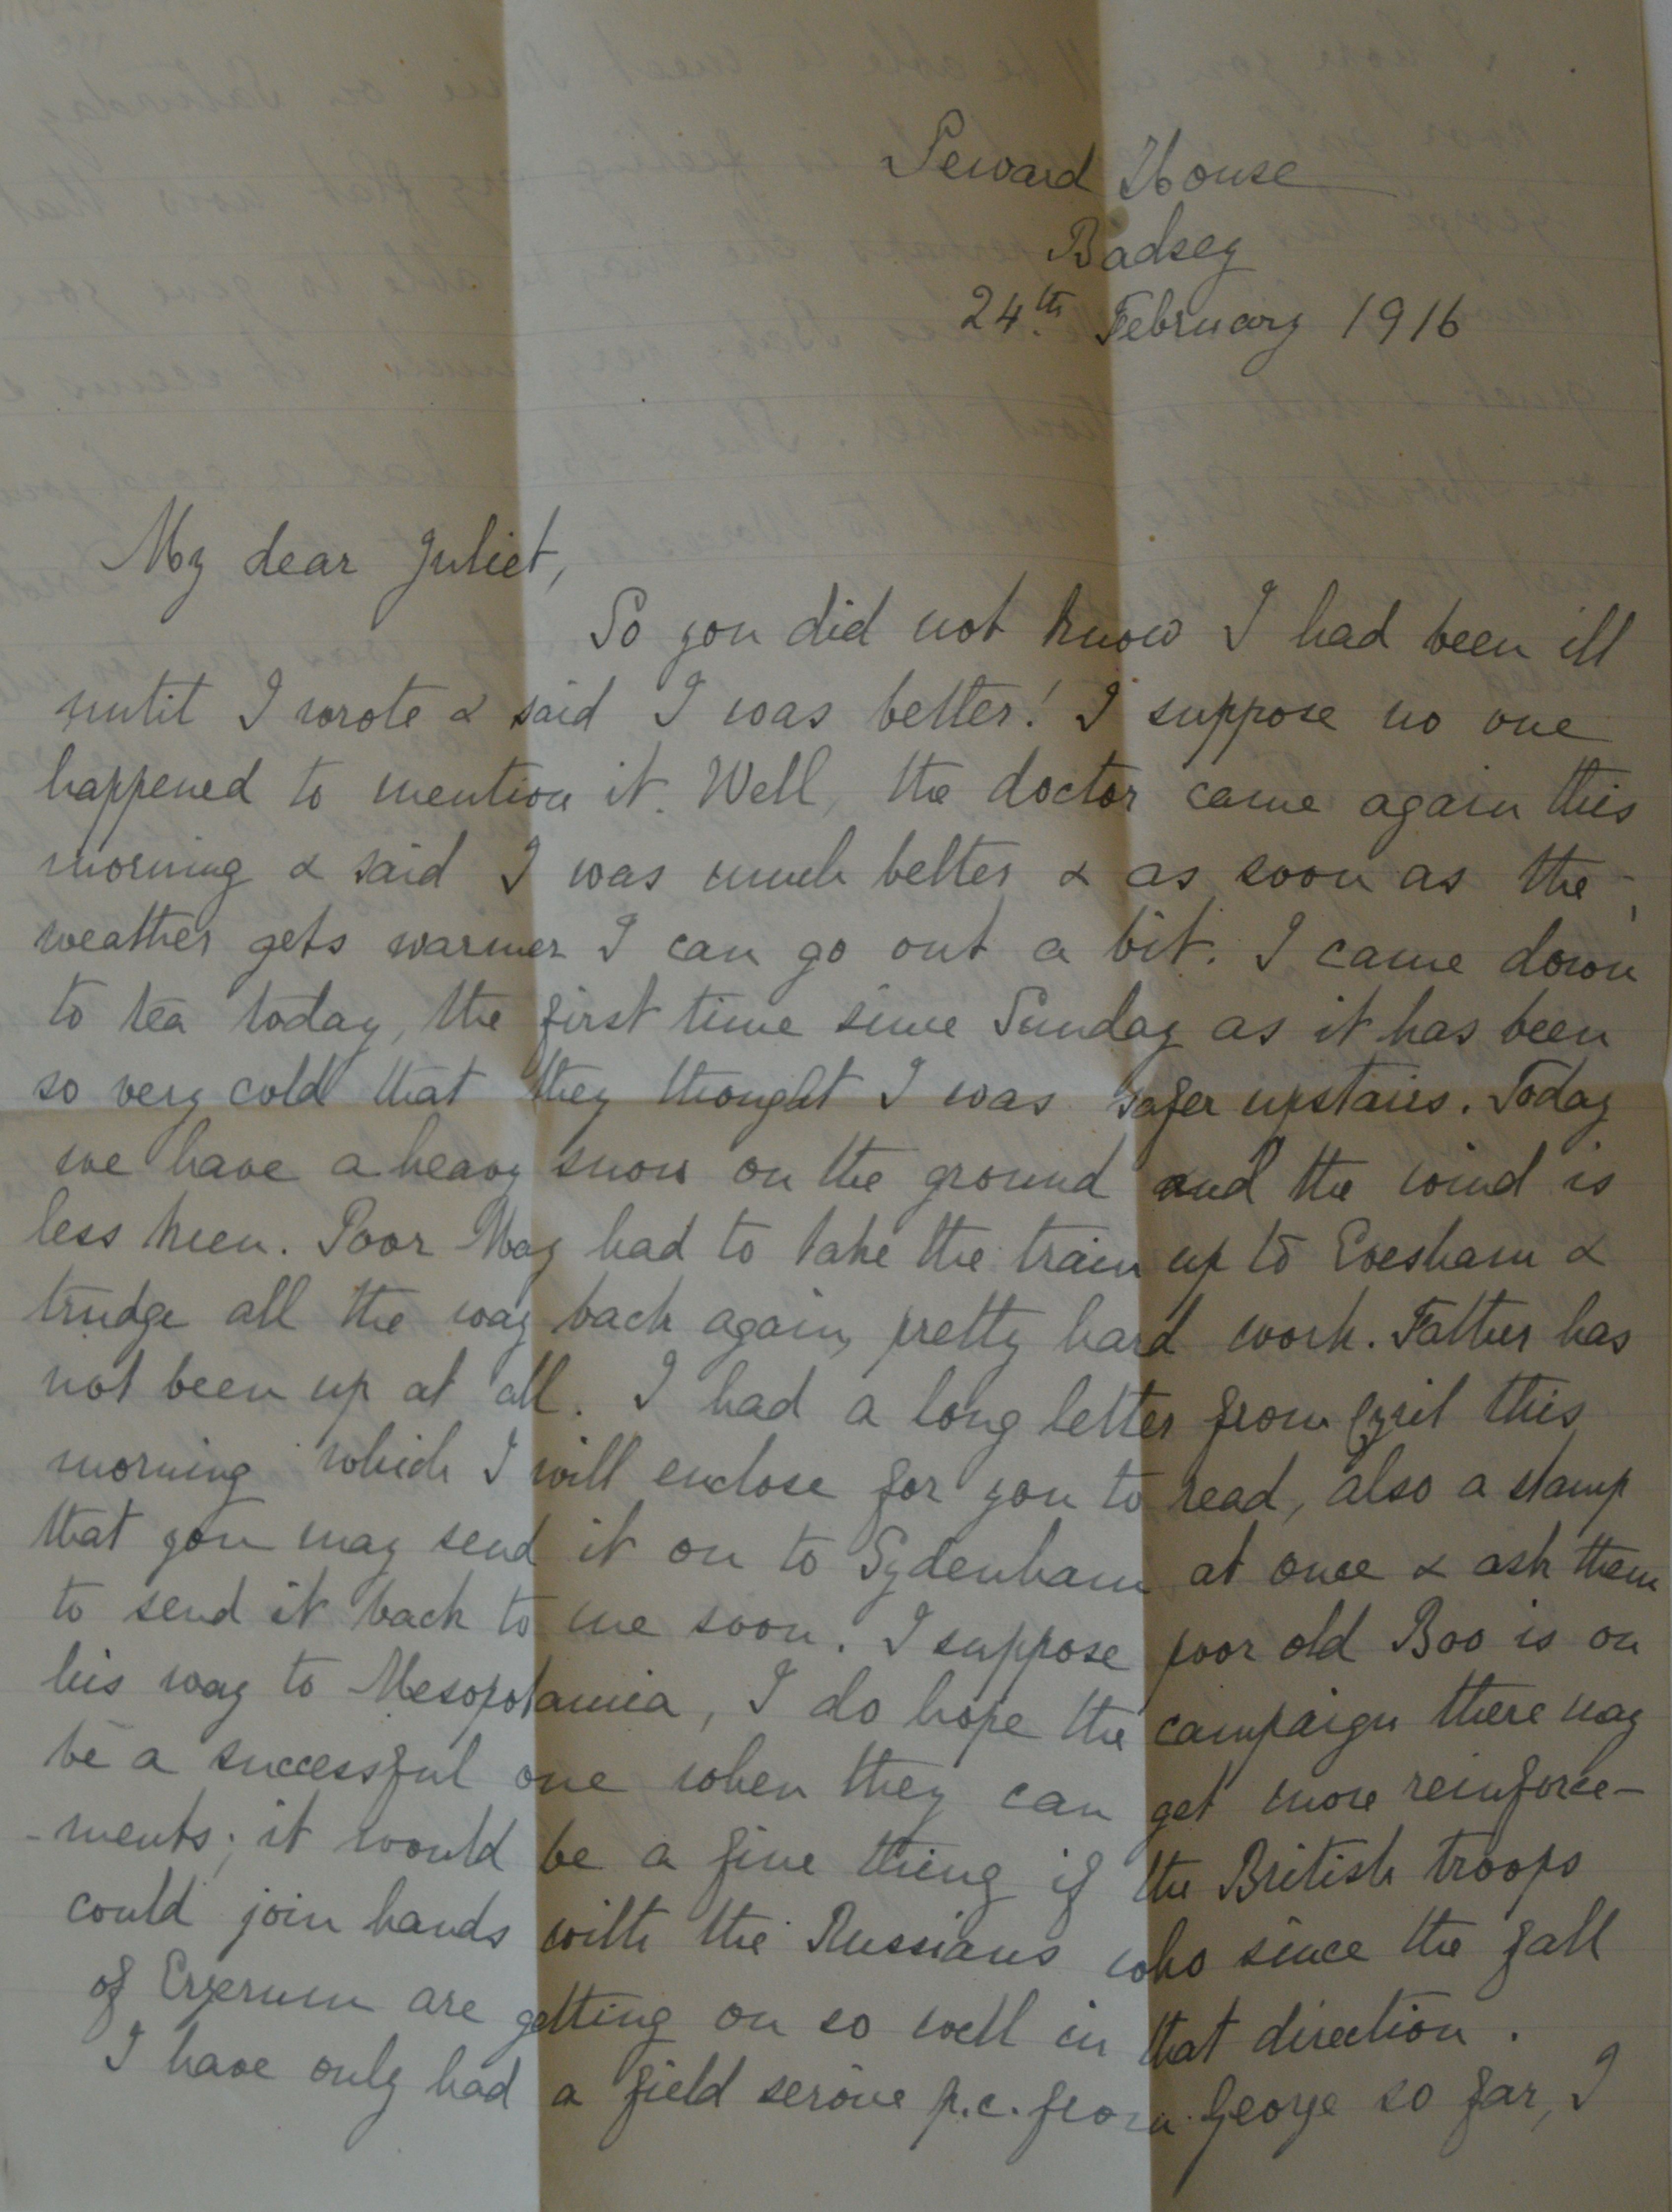 Seward House
Badsey
24th February 1916
My dear Juliet,
So you did not know I had been ill
until I wrote & said I was better! I suppose no one
happened to mention it. Well, the doctor came again this
morning & said I was much better & as soon as the
weather gets warmer I can go out a bit. I came down
to tea today, the first time since Sunday as it has been
so very cold that they thought I was safer upstairs. Today
we have a heavy snow on the ground and the wind is
less keen. Poor May had to take the train up to Evesham &
trudge all the way back again, pretty hard work. Father has
not been up at all. I had a long letter from Cyril this
morning which I will enclose for you to read, also a stamp
that you may send it on to Sydenham at once & ask them
to send it back to me soon. I suppose poor old Boo is on
his way to Mesopotamia, I do hope the campaign there may
be a successful one when they can get more reinforce-
-ments; it would be a fine thing if the British troops
could join hands with the Russians who since the fall
of Erzerum are getting on so well in that direction.
I have only had a field servive p.c. from George so far, I